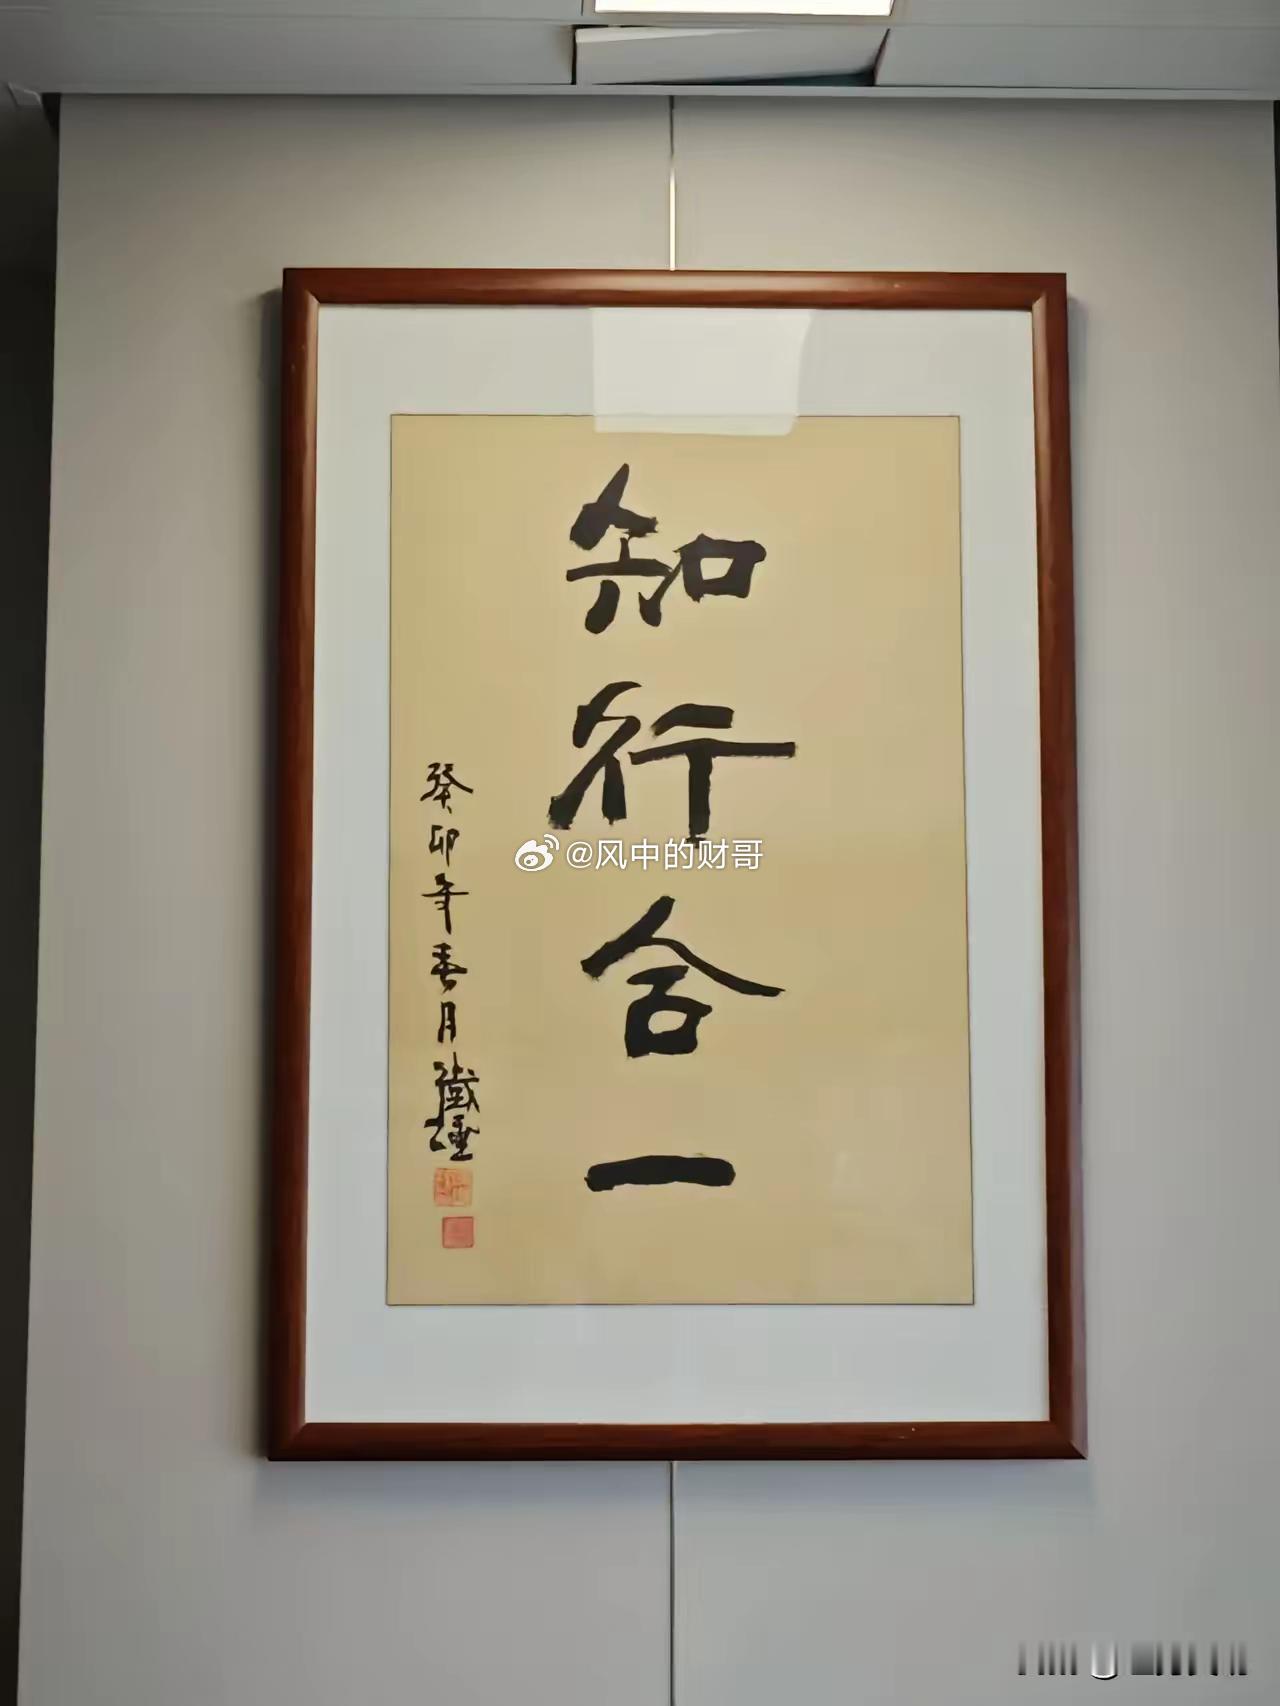 知行合一
癸卯年春月
@风中的财哥